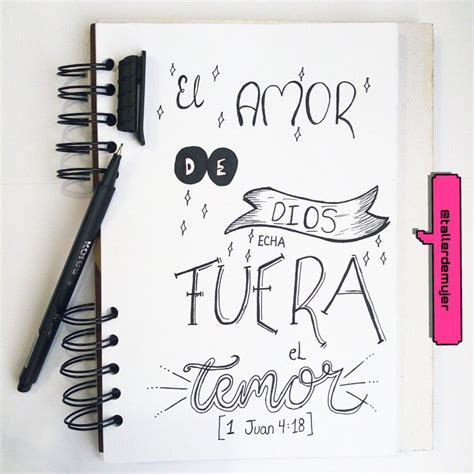 El AMOR
DE
DIOS
ECHA
FUERA
el
temor
[1 Juan 4:18]
@tallerdemujer
Kores